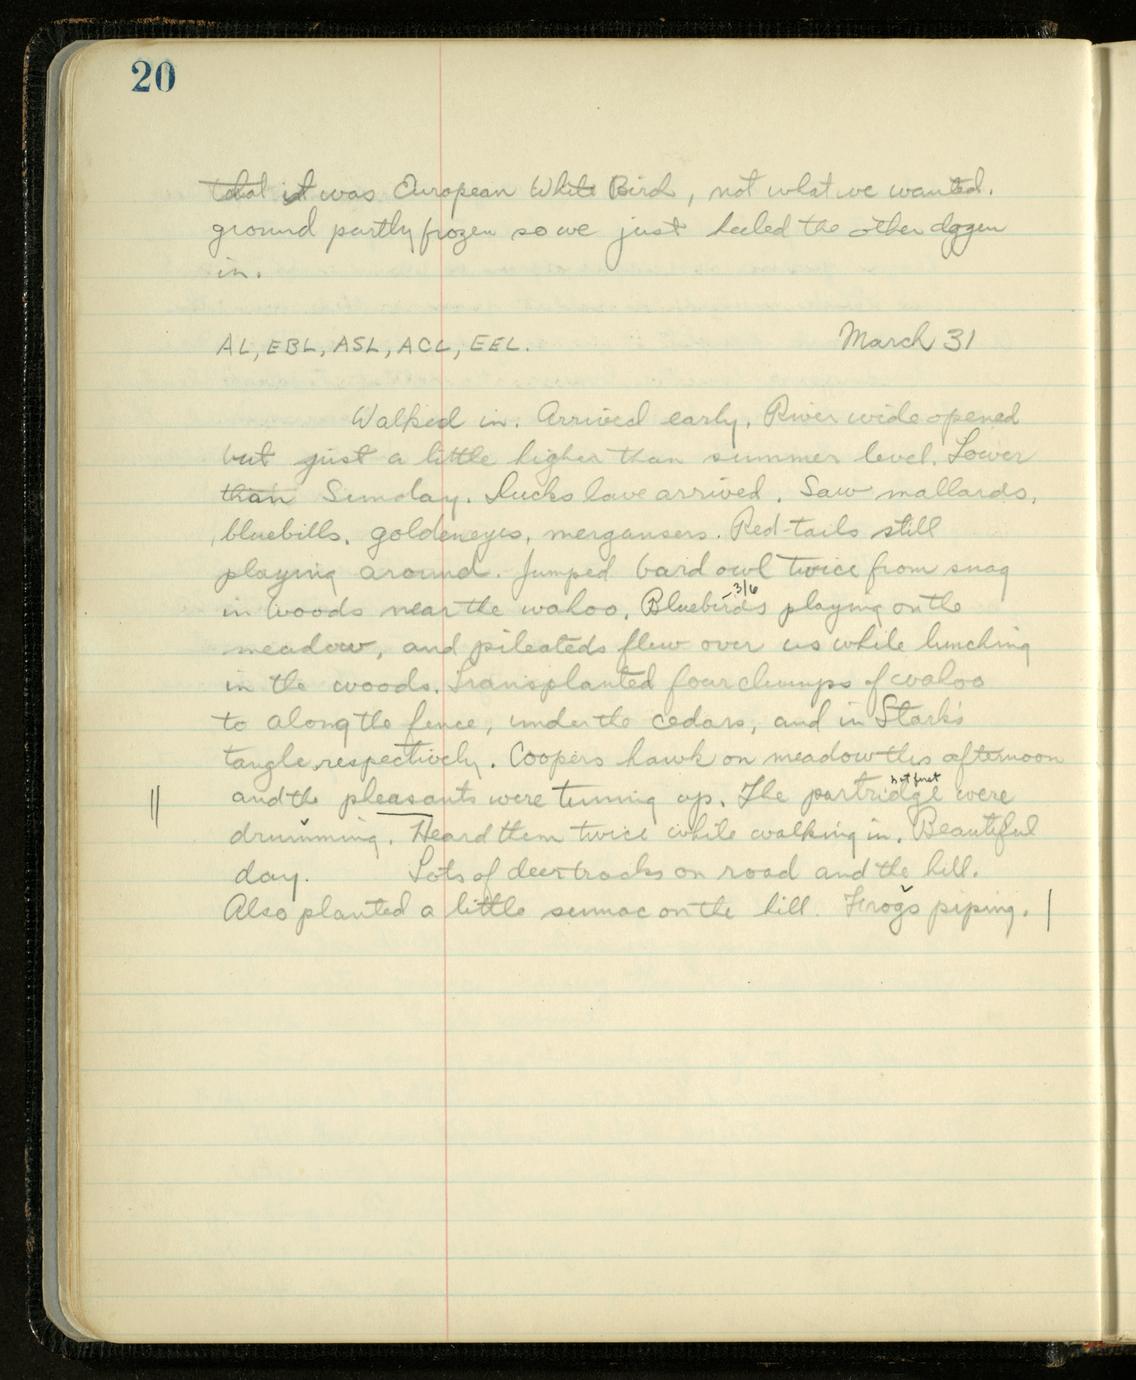 20
that it was European White Birch, not what we wanted.
ground partly frozen so we just heeled the other dozen
in.
AL, EBL, ASL, ACL, EEL.
March 31
Walked in. Arrived early. River wide opened
but just a little higher than summer level. Lower
than Sunday. Ducks have arrived. Saw mallards,
bluebills, goldeneyes, mergansers. Red-tails still
playing around. Jumped bard owl twice from snag
3/6
in woods near the wahoo. Bluebirds playing on the
meadow, and pileateds flew over us while lunching
in the woods. Transplanted four clumps of wahoo
to along the fence, under the cedars, and in Stark's
tangle, respectively. Coopers hawk on meadow this afternoon
not first
and the pheasants were tuning up. The partridge were
drumming. Heard them twice while walking in. Beautiful
day. Lots of deer tracks on road and the hill.
Also planted a little sumac on the hill. Frogs piping.